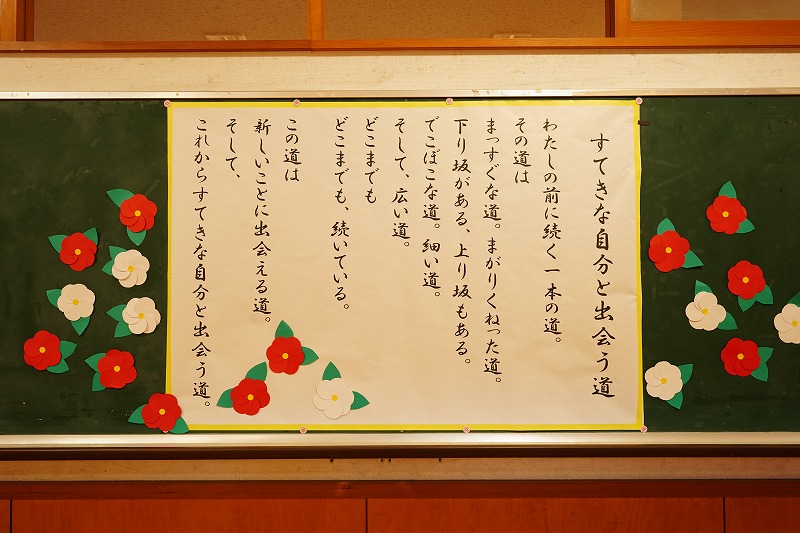 すてきな自分と出会う道
わたしの前に続く一本の道。
その道は
まっすぐな道。まがりくねった道。
下り坂がある、上り坂もある。
でこぼこな道。細い道。
そして、広い道。
どこまでも
どこまでも、続いている。
この道は
新しいことに出会える道。
そして、
これからすてきな自分と出会う道。